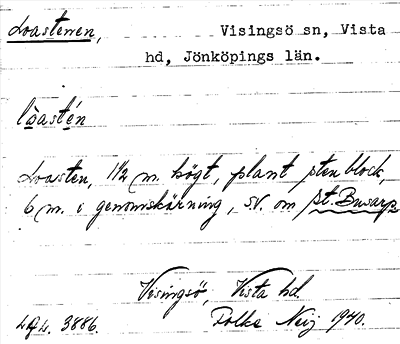 Loastenen, Visingsö sn, Vista
hd, Jönköpings län.
lòastén
Loasten, 1 1/2 m. högt, plant stenblock,
6 m. i genomskärning, sv. om St. Buvarp
Visingsö, Vista hd.
3886. Folke Neij 1940.